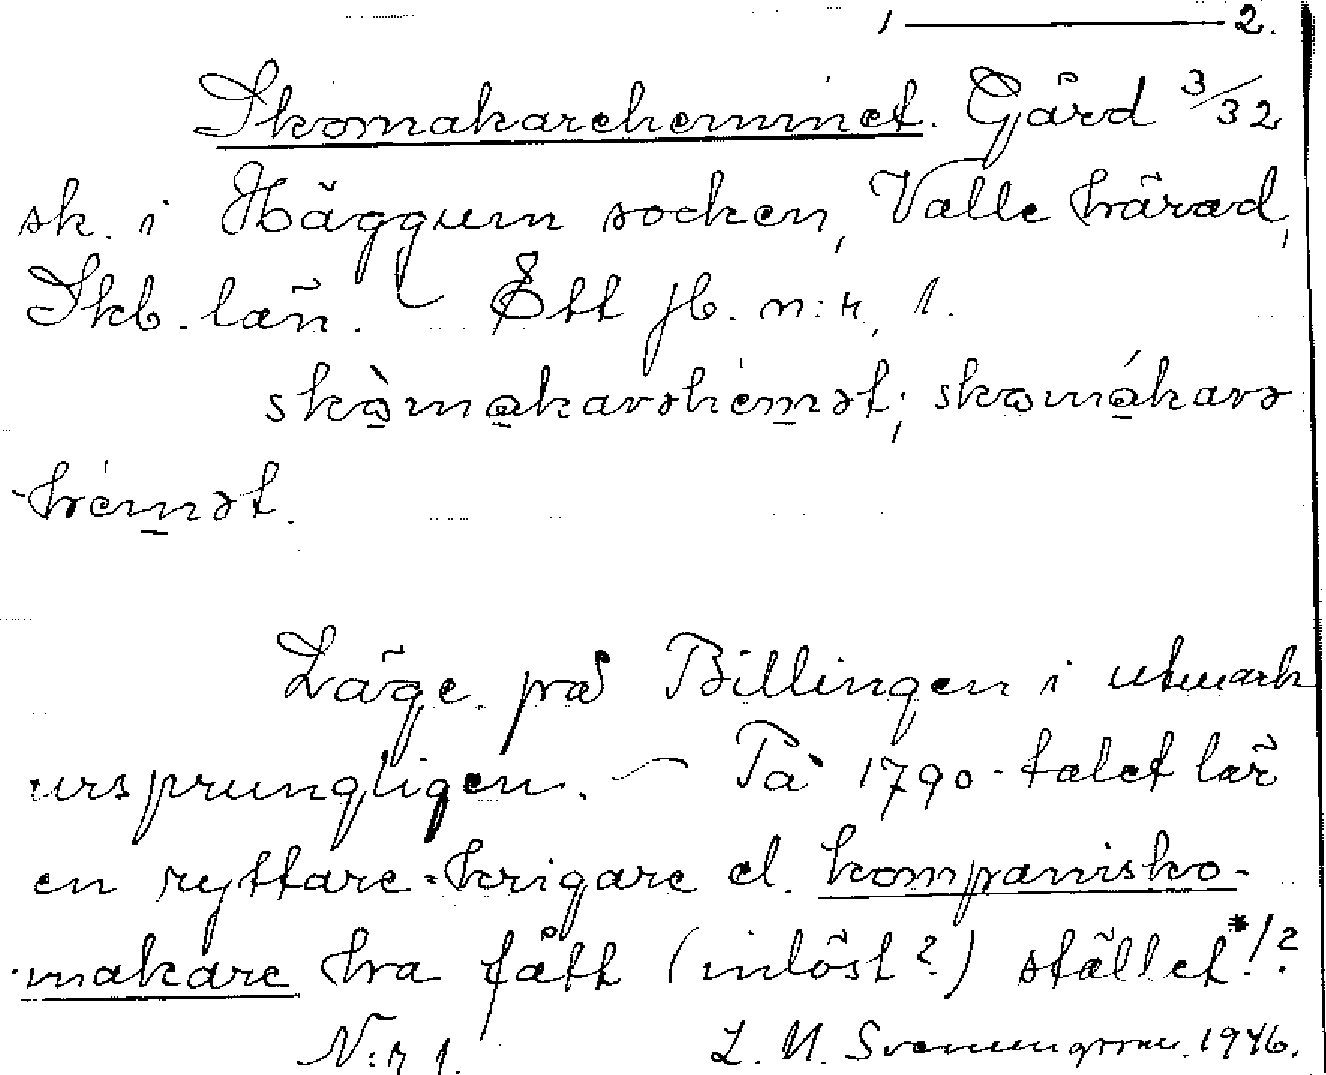 1 ——— 2.
Skomakarehemmet. Gård 3/32
sk. i Häggum socken, Valle härad,
Skb. län. Ett jb. n:r, 1.
skòmakarəhémət; skomákarə
-hémət.
Läge på Billingen i utmark
ursprungligen. — På 1790-talet lär
en ryttare-krigare el. kompanisko-
makare ha fått (inlöst?) stället*!?
N:r 1. L. M. Svenungsson. 1946.